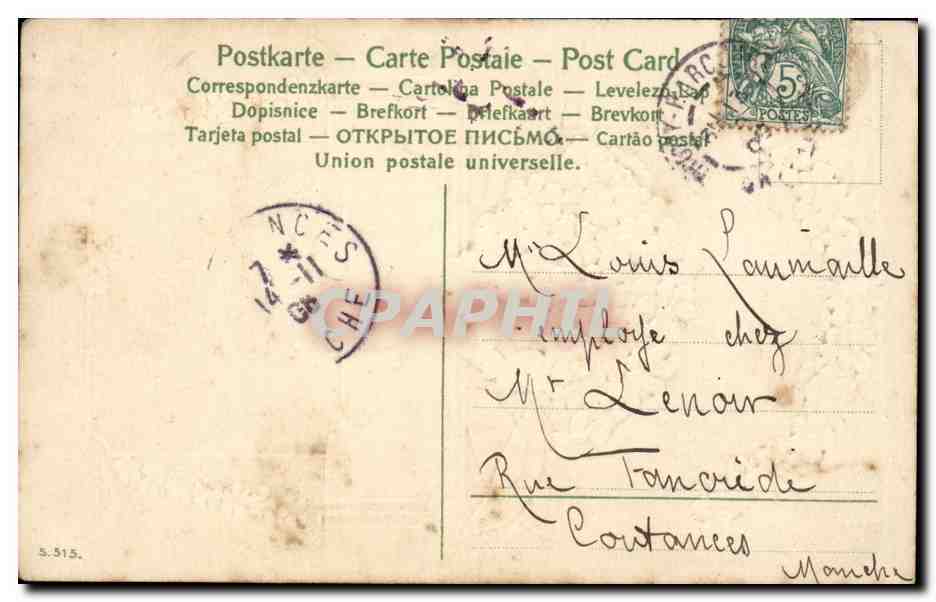 Postkarte – Carte Postale – Post Card
Correspondenzkarte – Cartolina Postale – Levelező-Lap
Dopisnice – Brefkort – Briefkaart – Brevkort
Tarjeta postal – ОТКРЫТОЕ ПИСЬМО – Cartão postal
Union postale universelle.
5c
POSTES
NCES
7 *
14 -11
CHE
CPAPHIL
Mr Louis Laumaille
employe chez
Mr Lenoir
Rue Tancrède
Coutances
Manche
S. 515.